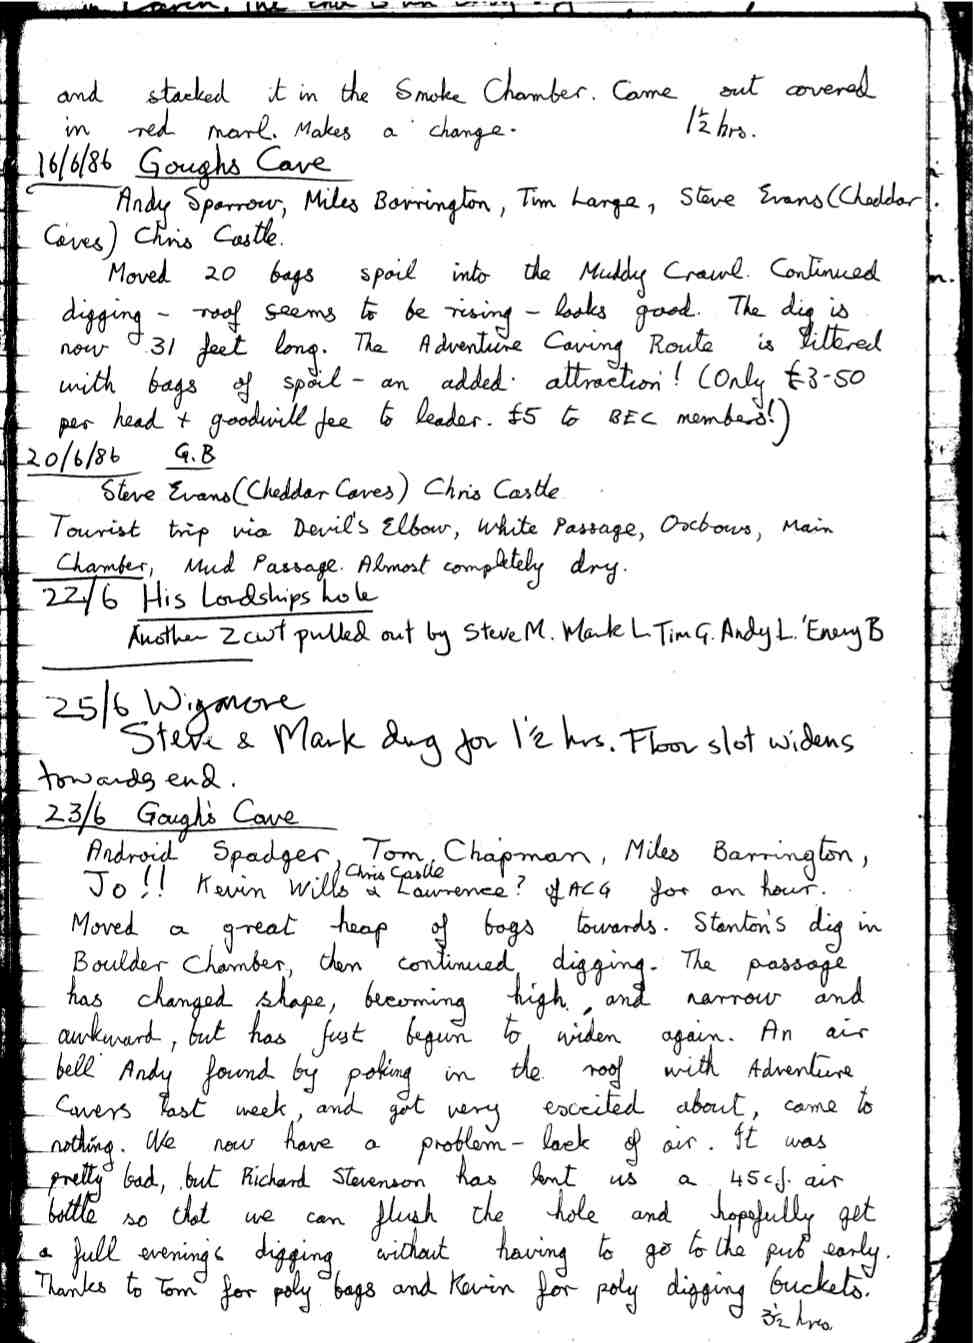 and stacked it in the Smoke Chamber. Came out covered
in red marl. Makes a change. 1½ hrs.
16/6/86 Goughs Cave
Andy Sparrow, Miles Barrington, Tim Large, Steve Evans (Cheddar
Caves) Chris Castle.
Moved 20 bags spoil into the Muddy Crawl. Continued
digging - roof seems to be rising - looks good. The dig is
now 31 feet long. The Adventure Caving Route is littered
with bags of spoil - an added attraction! (Only £3-50
per head + goodwill fee to leader. £5 to BEC members!)
20/6/86 G.B
Steve Evans (Cheddar Caves) Chris Castle
Tourist trip via Devil's Elbow, White Passage, Oxbows, Main
Chamber, Mud Passage. Almost completely dry.
22/6 His Lordships hole
Another 2 cwt pulled out by Steve M. Mark L. Tim G. Andy L. 'Enery B
25/6 Wigmore
Steve & Mark dug for 1½ hrs. Floor slot widens
towards end.
23/6 Gough's Cave
Android Spadger, Tom Chapman, Miles Barrington,
Chris Castle
Jo!! Kevin Wills & Lawrence? of ACG for an hour.
Moved a great heap of bags towards Stanton's dig in
Boulder Chamber, then continued digging. The passage
has changed shape, becoming high, and narrow and
awkward, but has just begun to widen again. An air
bell Andy found by poking in the roof with Adventure
Cavers last week, and got very excited about, came to
nothing. We now have a problem - lack of air. It was
pretty bad, but Richard Stevenson has lent us a 45 c.f. air
bottle so that we can flush the hole and hopefully get
a full evenings digging without having to go to the pub early.
Thanks to Tom for poly bags and Kevin for poly digging buckets.
3½ hrs